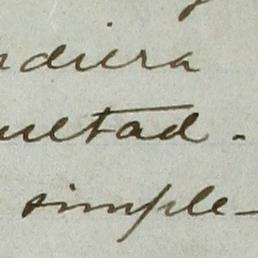 ndiera
ultad.
simple-